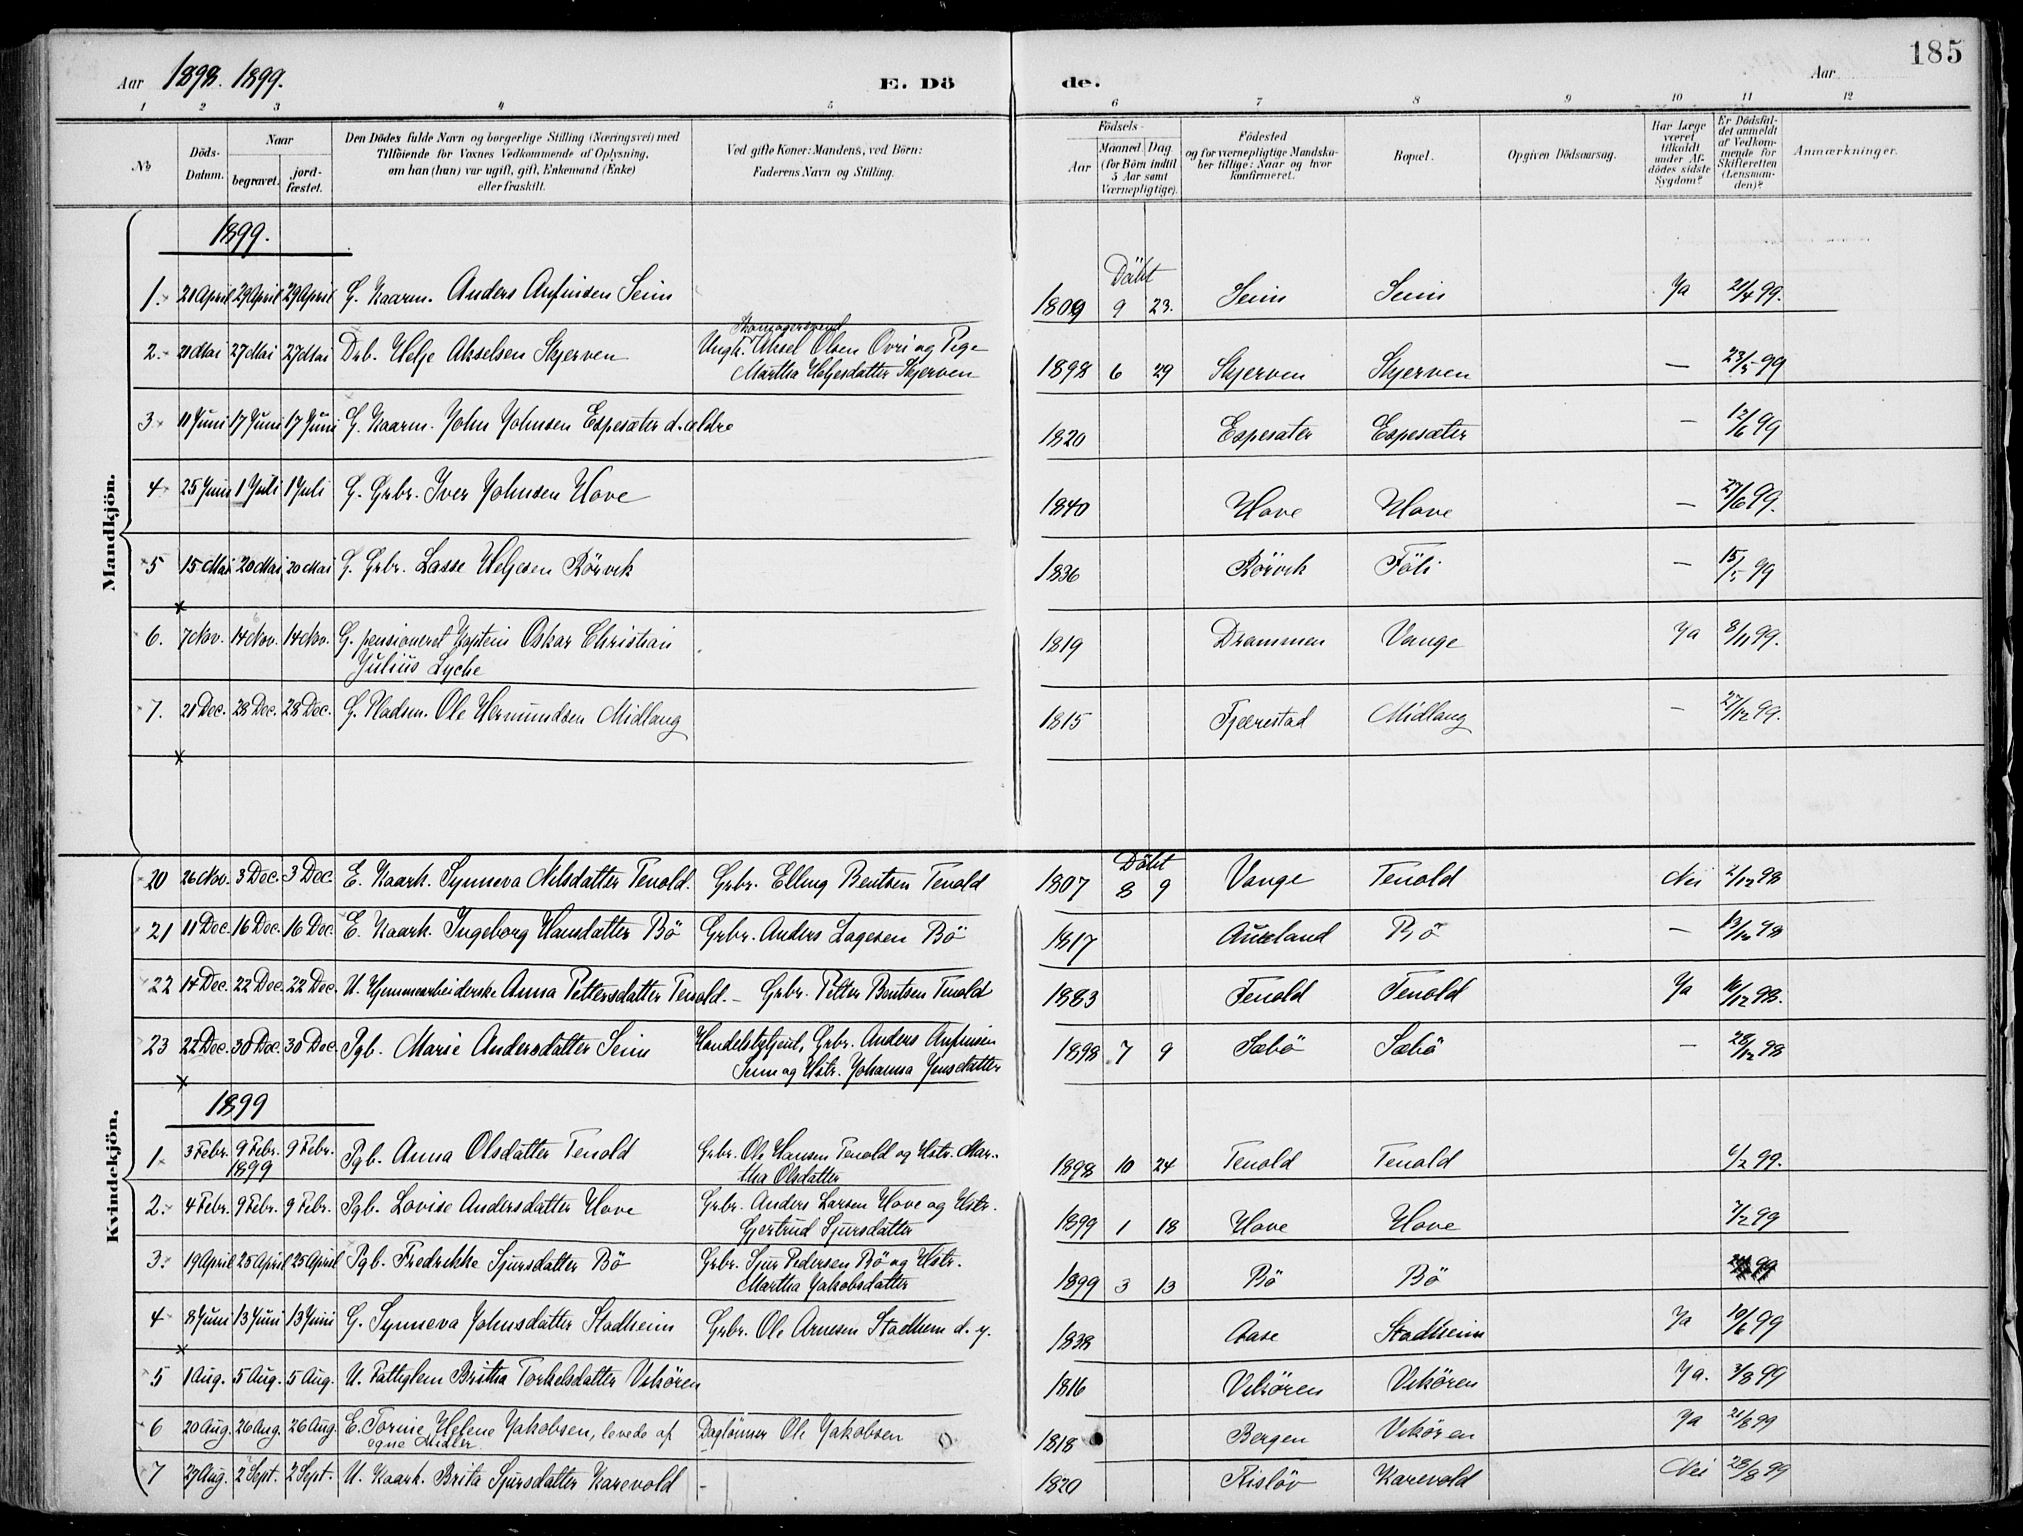 185
Aar 1898. 1899. E. Dö de. Aar
1 2 3 4 5 6 7 8 9 10 11 12
No. Döds-Datum. Naar begravet. jordfæstet. Den Dödes fulde Navn og borgerlige Stilling (Næringsvei) med Tilföiende for Voxnes Vedkommende af Oplysning, om han (hun) var ugift, gift, Enkemand (Enke) eller fraskilt. Ved gifte Koner: Mandens, ved Börn: Faderens Navn og Stilling. Födsels- Aar Maaned Dag. (for Börn indtil 5 Aar samt Værnepligtige). Födested og for værnepligtige Mandskaber tillige: Naar og hvor konfirmeret. Bopæl. Opgiven Dödsaarsag. Har Læge været tilkaldt under Afdödes sidste Sygdom? Er Dödsfaldet anmeldt af Vedkommende for Skifteretten (Lensmanden)? Anmærkninger.
Mandkjön.
1899.
Döbt
1. 21 April 29 April 29 April G. Kaarm. Anders Anfindsen Seim 1809 9 23. Seim Seim Ja 21/4 99.
Skomagersvend
2. 21 Mai 27 Mai 27 Mai Drb. Helje Akselsen Skjerven Ungk. Aksel Olsen Ovri og Pige
Martha Heljesdatter Skjerven 1898 6 29 Skjerven Skjerven — 23/5 99
3 11 Juni 17 Juni 17 Juni G. Kaarm. John Johnsen Espesæter d. ældre 1820 Espesæter Espesæter — 12/6 99
4 25 Juni 1 Juli 1 Juli G. Grbr. Iver Johnsen Hove 1840 Hove Hove — 27/6 99.
5 15 Mai 20 Mai 20 Mai G. Grbr. Lasse Heljesen Rörvik 1836 Rörvik Föli — 15/5 99
6. 7 Nov. 14 Nov. 14 Nov. G. pensioneret Kaptein Oskar Christian
Julius Lyche 1819 Drammen Vange Ja 8/11 99.
7. 21 Dec. 28 Dec. 28 Dec. G. Hadsm. Ole Hermundsen Midlang 1815 Fjærestad Midlang — 27/12 99.
Kvindekjön.
Döbt
20 26 Nov. 3 Dec. 3 Dec. E. Kaark. Synneva Nilsdatter Tenold. Grbr. Elling Bentsen Tenold 1807 8 9 Vange Tenold Nei 2/12 98
21 11 Dec. 16 Dec. 16 Dec. E. Kaark. Ingeborg Hansdatter Bö Grbr. Anders Lagesen Bö 1817 Aurland Bö — 13/12 98
22 14 Dec. 22 Dec. 22 Dec. U. Hjemmearbeiderske Anna Pettersdatter Tenold — Grbr. Petter Bentsen Tenold 1883 Tenold Tenold Ja 16/12 98.
23 22 Dec. 30 Dec. 30 Dec. Pgb. Marie Andersdatter Seim Handelsbetjent, Grbr. Anders Anfinsen
Seim og Hstr. Johanna Jensdatter 1898 7 9 Sæbö Sæbö — 28/12 98
1899
1. 3 Febr. 9 Febr. 9 Febr. Pgb. Anna Olsdatter Tenold Grbr. Ole Hansen Tenold og Hstr. Mar-
1899 tha Olsdatter 1898 10 24 Tenold Tenold 6/2 99.
2. 4 Febr. 9 Febr. 9 Febr. Pgb. Lovise Andersdatter Hove Grbr. Anders Larsen Hove og Hstr.
Gjertrud Sjursdatter 1899 1 18 Hove Hove 7/2 99
3. 19 April 25 April 25 April Pgb. Fredrikke Sjursdatter Bö Grbr. Sjur Pedersen Bö og Hstr.
Martha Jakobsdatter 1899 3 13 Bö Bö
4 8 Juni 13 Juni 13 Juni G. Synneva Johnsdatter Stadheim Grbr. Ole Arnesen Stadheim d. y. 1838 Aase Stadheim Ja 10/6 99
5 1 Aug. 5 Aug. 5 Aug. U. Fattiglem Britha Torkelsdatter Vikören 1816 Vikören Vikören Ja. 3/8 99
6 20 Aug. 26 Aug. 26 Aug. E. Torine Helene Jakobsen, levede af Daglönner Ole Jakobsen 1818 Bergen Vikören Ja 21/8 99
egne Midler
7 27 Aug. 2 Sept. 2 Sept. U. Kaark. Brita Sjursdatter Karevold — 1820 Risløv Karevold Nei 28/8 99